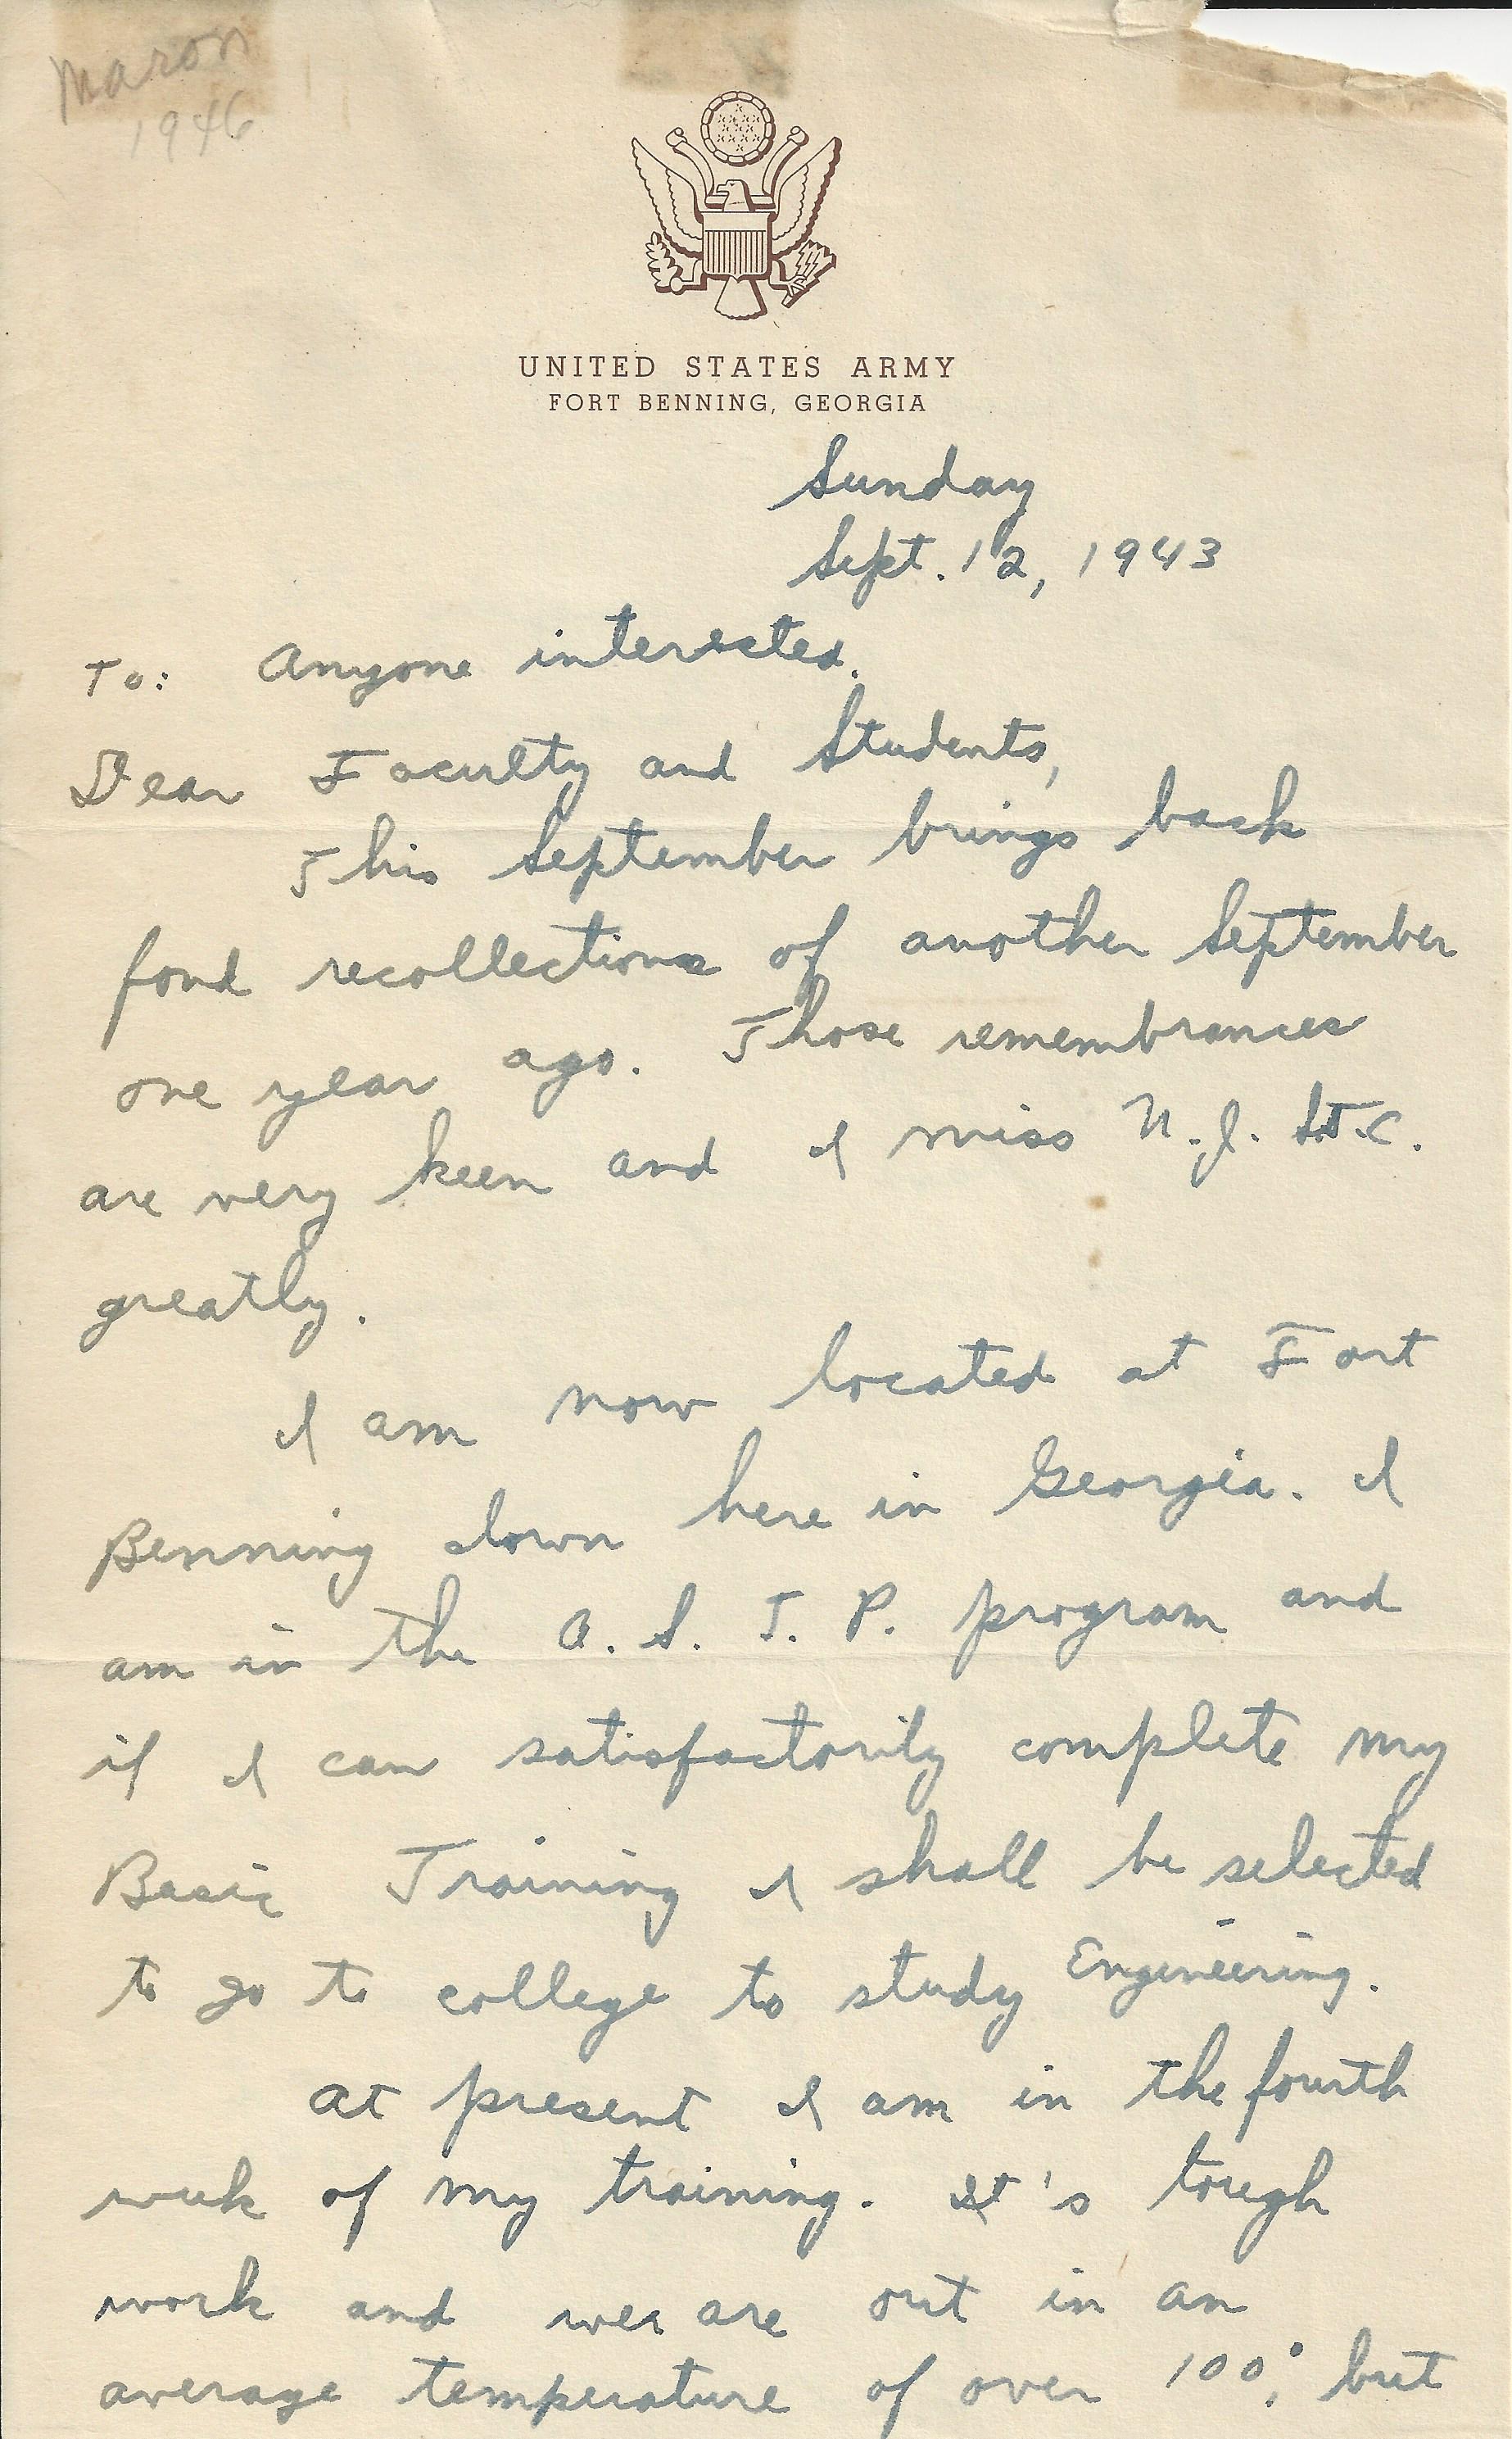 Maron
1946
UNITED STATES ARMY
FORT BENNING, GEORGIA
Sunday
Sept. 12, 1943
To: Anyone interested.
Dear Faculty and Students,
This September brings back
fond recollections of another September
one year ago. Those remembrances
are very keen and I miss N.J. S.T.C.
greatly.
I am now located at Fort
Benning down here in Georgia. I
am in the A. S. T. P. program and
if I can satisfactorily complete my
Basic Training I shall be selected
to go to college to study Engineering.
At present I am in the fourth
week of my training. It's tough
work and we are out in an
average temperature of over 100°; but